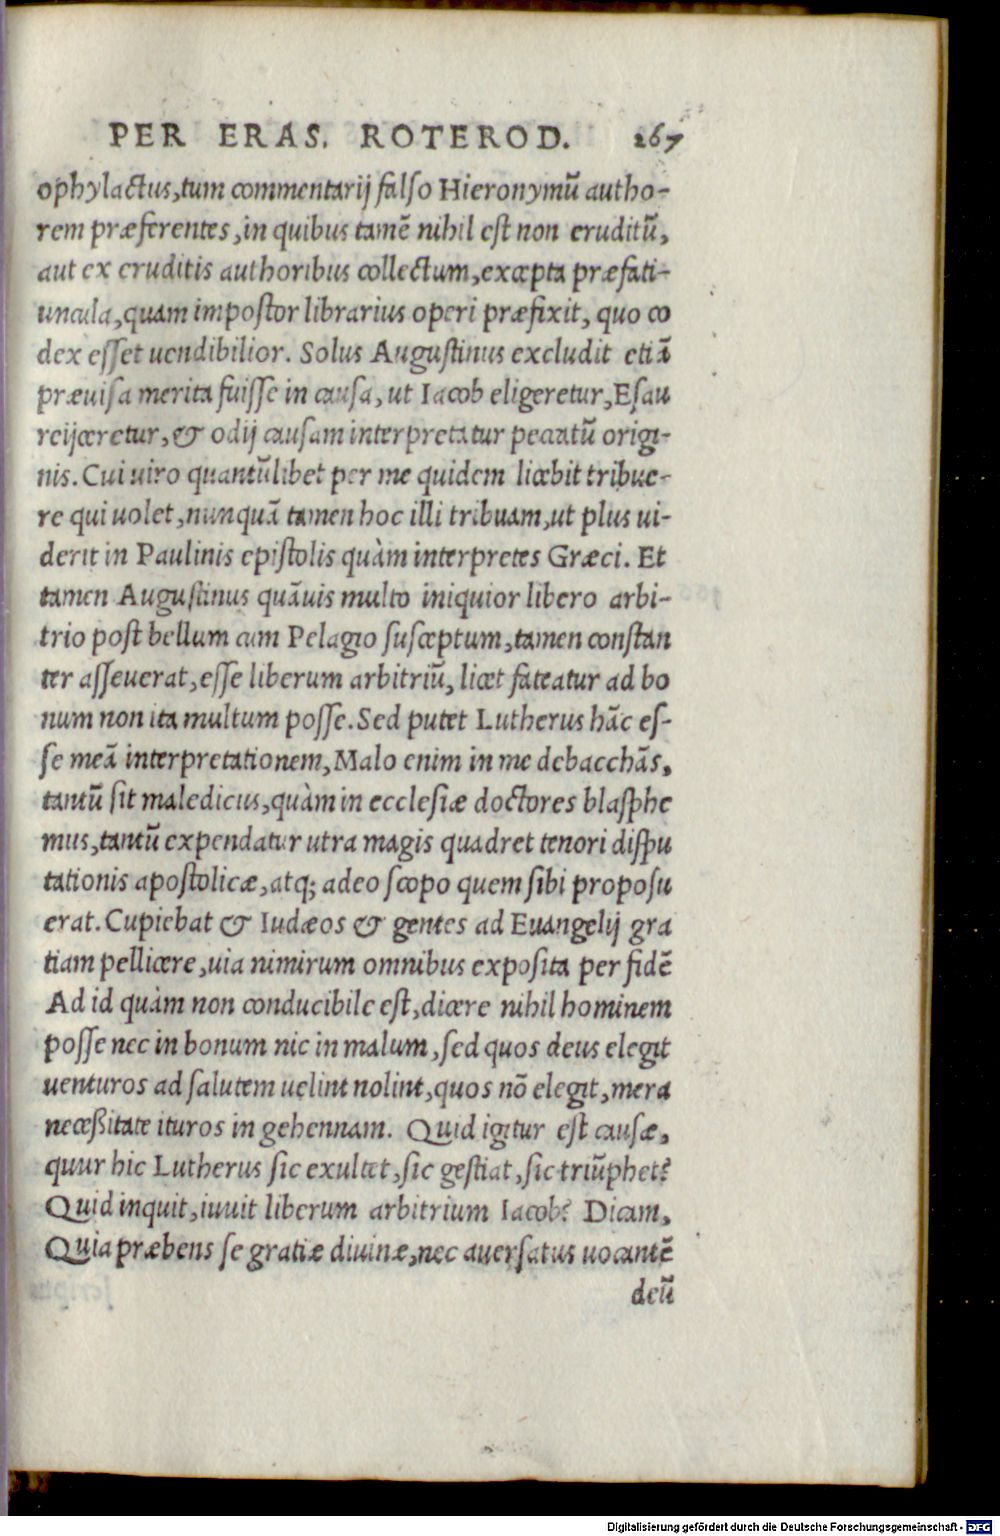 PER ERAS. ROTEROD. 267
ophylactus,tum commentarij falso Hieronymũ autho-
rem præferentes,in quibus tamẽ nihil est non eruditũ,
aut ex eruditis authoribus collectum,excepta præfati-
uncula,quam impostor librarius operi præfixit, quo co
dex esset uendibilior. Solus Augustinus excludit etiã
præuisa merita fuisse in causa, ut Iacob eligeretur,Esau
reijceretur,& odij causam interpretatur peccatũ origi-
nis. Cui uiro quantũlibet per me quidem licebit tribue-
re qui uolet,nunquã tamen hoc illi tribuam,ut plus ui-
derit in Paulinis epistolis quàm interpretes Græci. Et
tamen Augustinus quãuis multo iniquior libero arbi-
trio post bellum cum Pelagio susceptum,tamen constan
ter asseuerat,esse liberum arbitriũ, licet fateatur ad bo
num non ita multum posse. Sed putet Lutherus hãc es-
se meã interpretationem,Malo enim in me debacchãs,
tantũ sit maledicus,quàm in ecclesiæ doctores blasphe
mus,tantũ expendatur utra magis quadret tenori dispu
tationis apostolicæ,atq; adeo scopo quem sibi proposu
erat. Cupiebat & Iudæos & gentes ad Euangelij gra
tiam pellicere,uia nimirum omnibus exposita per fidẽ
Ad id quàm non conducibile est,dicere nihil hominem
posse nec in bonum nic in malum,sed quos deus elegit
uenturos ad salutem uelint nolint,quos nõ elegit,mera
neceßitate ituros in gehennam. Quid igitur est causæ,
quur hic Lutherus sic exultet,sic gestiat,sic triũphet?
Quid inquit,iuuit liberum arbitrium Iacob? Dicam,
Quia præbens se gratiæ diuinæ,nec auersatus uocantẽ
deũ
Digitalisierung gefördert durch die Deutsche Forschungsgemeinschaft - DFG